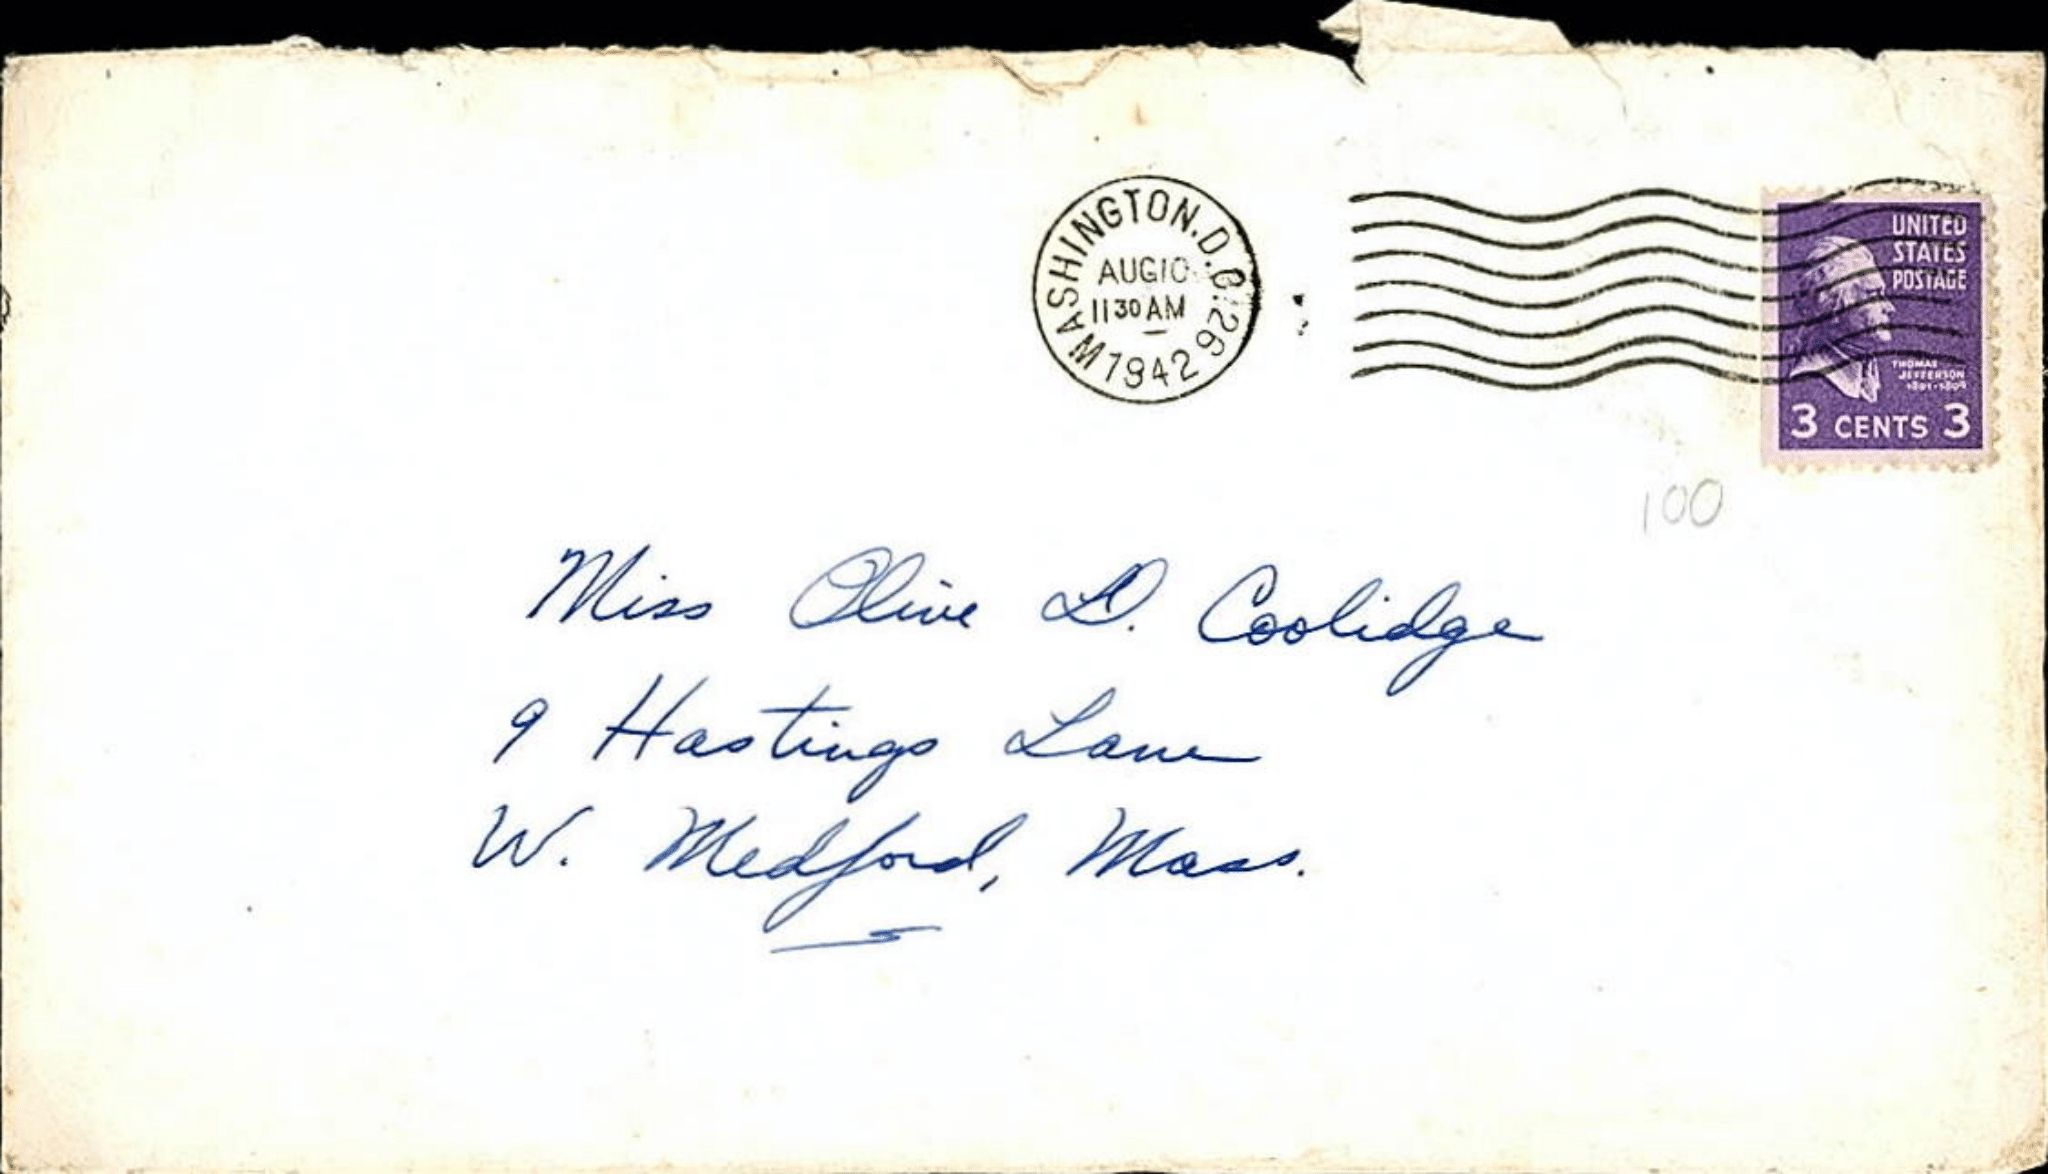 WASHINGTON, D.C. 26
AUG 10
11 30 AM
1942
UNITED
STATES
POSTAGE
THOMAS
JEFFERSON
1801-1809
3 CENTS 3
100
Miss Olive D. Coolidge
9 Hastings Lane
W. Medford, Mass.